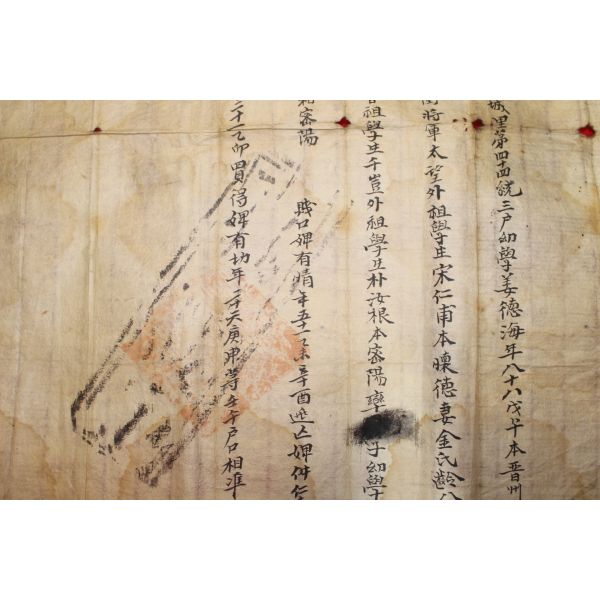 城里第四十四統三戶幼學姜德海年八十八戊午本晋州
將軍太望外祖學生宋仁甫本懷德妻金氏齡八
祖學生千豈外祖學生朴汝根本密陽 子幼學
密陽
賤口婢有晴年五十一乙未辛酉逃亡婢件仁
二十一乙卯買得婢有切年二十六庚申等壬午戶口相準